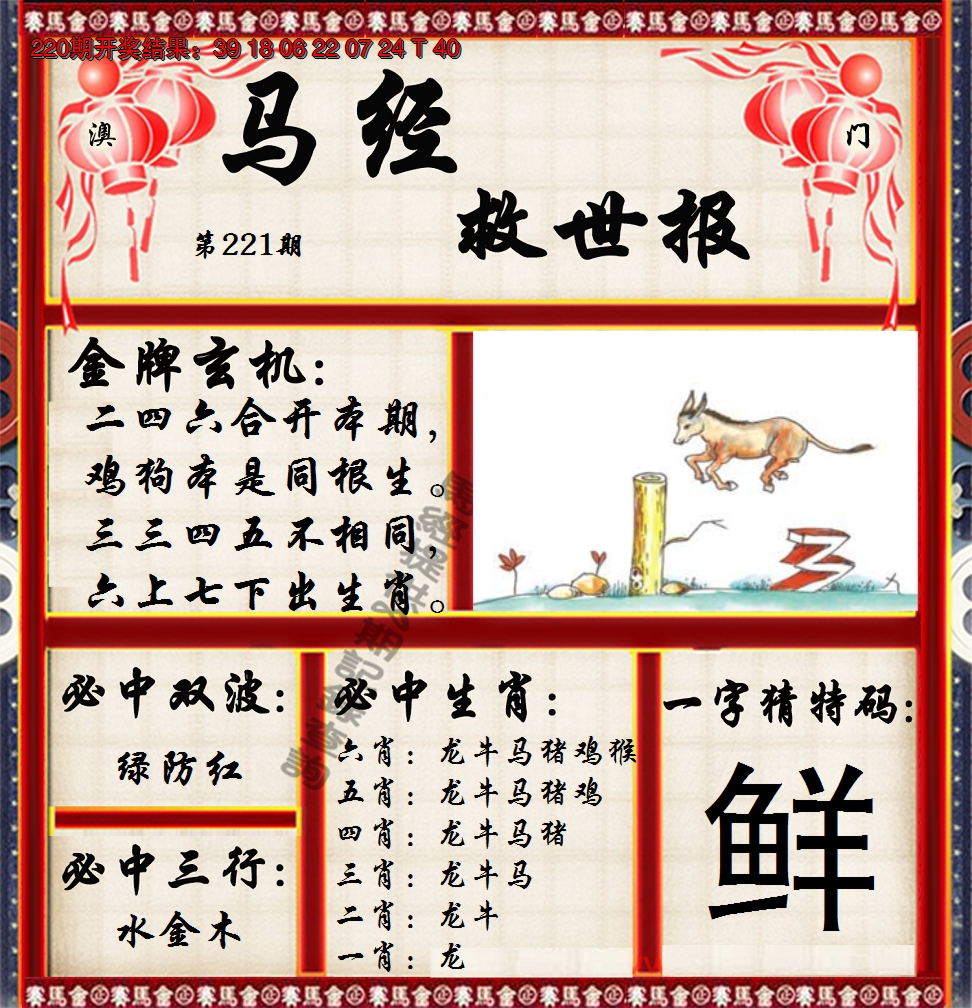 賽馬會
220期开奖结果：39 18 06 22 07 24 T 40
澳
门
马经
救世报
第221期
金牌玄机：
二四六合开本期，
鸡狗本是同根生。
三三四五不相同，
六上七下出生肖。
必中双波：
绿防红
必中三行：
水金木
必中生肖：
六肖：龙牛马猪鸡猴
五肖：龙牛马猪鸡
四肖：龙牛马猪
三肖：龙牛马
二肖：龙牛
一肖：龙
一字猜特码：
鲜